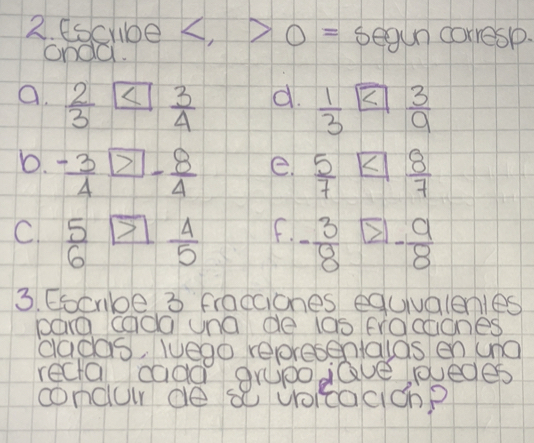 2. Escribe <, > o = segun corresp.
onda.
a. 2/3 < 3/4 d. 1/3 < 3/9
b. -3/4 > -8/4 e. 5/7 < 8/7
c. 5/6 > 4/5 f. -3/8 > -9/8
3. Escribe 3 fracciones equivalentes
para cada una de las fracciones
dadas, luego representalas en una
recta cada grupo ¿Que puedes
concluir de su ubicación?